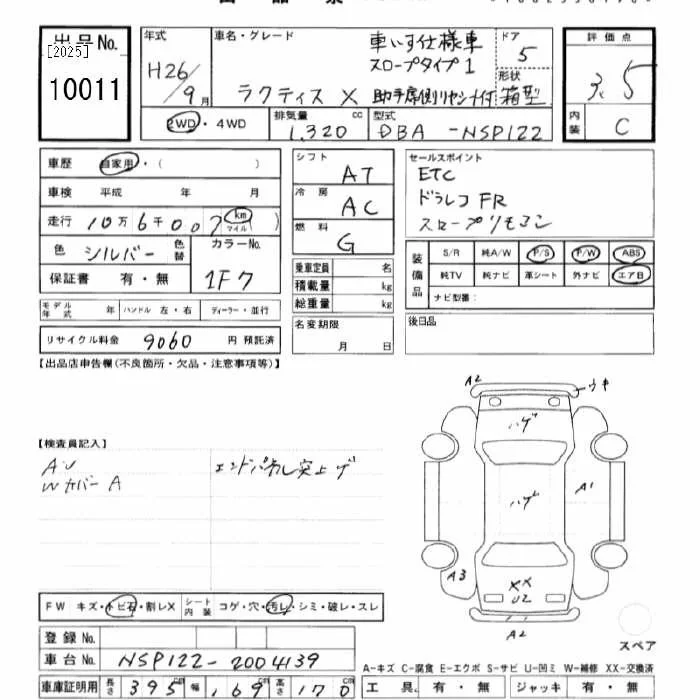 出品票
出品No.
[2025]
10011
年式
H26/9月
車名・グレード
ラクティス X
車いす仕様車
スロープタイプ1
助手席側リヤシート付
ドア
5
形状
箱型
評価点
3.5
内装
C
2WD・4WD
排気量
1,320 cc
型式
DBA -NSP122
車歴 自家用・( )
車検 平成 年 月
走行 10万6千007 (km マイル)
色 シルバー 色替
カラーNo.
1F7
保証書 有・無
モデル年式 年 ハンドル 左・右 ディーラー・並行
リサイクル料金 9060 円 預託済
シフト AT
冷房 AC
燃料 G
乗車定員 名
積載量 kg
総重量 kg
名変期限
月 日
セールスポイント
ETC
ドラレコ FR
スロープリモコン
装備品
S/R 純A/W P/S P/W ABS
純TV 純ナビ 革シート 外ナビ エアB
ナビ型番:
後日品
【出品店申告欄(不良箇所・欠品・注意事項等)】
【検査員記入】
AU
Wカバー A
エンドパネル突上ゲ
A2
ウキ
ハゲ
ハゲ
A1
A3
XX
U2
A2
スペア
FW キズ・トビ石・割レX
シート内装 コゲ・穴・汚レ・シミ・破レ・スレ
登録No.
車台No. NSP122-2004139
車庫証明用 長さ 395 cm 幅 169 cm 高さ 170 cm
A-キズ C-腐食 E-エクボ S-サビ U-凹ミ W-補修 XX-交換済
工具 有・無 ジャッキ 有・無